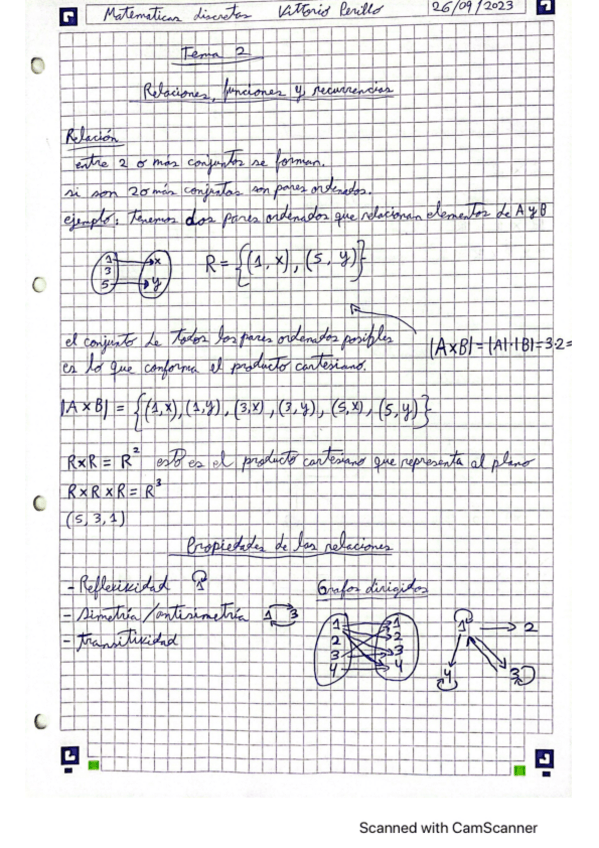 Matematicas discretas Vittorio Perillo 26/09/2023
Tema 2
Relaciones, funciones y recurrencias
Relación
entre 2 o mas conjuntos se forman.
si son 2 o más conjuntos son pares ordenados.
ejemplo: tenemos dos pares ordenados que relacionan elementos de A y B
1 x
3
5 y
R = {(1, x), (5, y)}
el conjunto de todos los pares ordenados posibles
es lo que conforma el producto cartesiano.
|A×B| = |A|·|B| = 3·2 =
|A×B| = {(1,x), (1,y), (3,x), (3,y), (5,x), (5,y)}
R×R = R² esto es el producto cartesiano que representa al plano
R×R×R = R³
(5, 3, 1)
Propiedades de las relaciones
- Reflexividad 1
- Simetría/antisimetría 1 3
- transitividad
Grafos dirigidos
1 1
2 2
3 3
4 4
1 2
4 3
Scanned with CamScanner